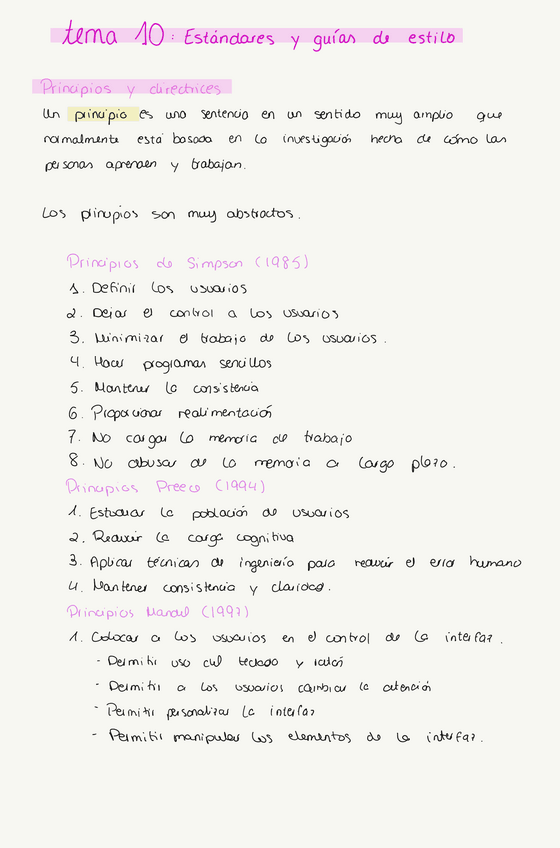 tema 10: Estándares y guías de estilo
Principios y directrices
Un principio es una sentencia en un sentido muy amplio que
normalmente está basada en la investigación hecha de cómo las
personas aprenden y trabajan.
Los principios son muy abstractos.
Principios de Simpson (1985)
1. Definir los usuarios
2. Dejar el control a los usuarios
3. Minimizar el trabajo de los usuarios.
4. Hacer programas sencillos
5. Mantener la consistencia
6. Proporcionar realimentación
7. No cargar la memoria de trabajo
8. No abusar de la memoria a largo plazo.
Principios Preece (1994)
1. Estudiar la población de usuarios
2. Reducir la carga cognitiva
3. Aplicar técnicas de ingeniería para reducir el error humano
4. Mantener consistencia y claridad.
Principios Mandel (1997)
1. Colocar a los usuarios en el control de la interfaz.
- Permitir uso del teclado y ratón
- Permitir a los usuarios cambiar la atención
- Permitir personalizar la interfaz
- Permitir manipular los elementos de la interfaz.